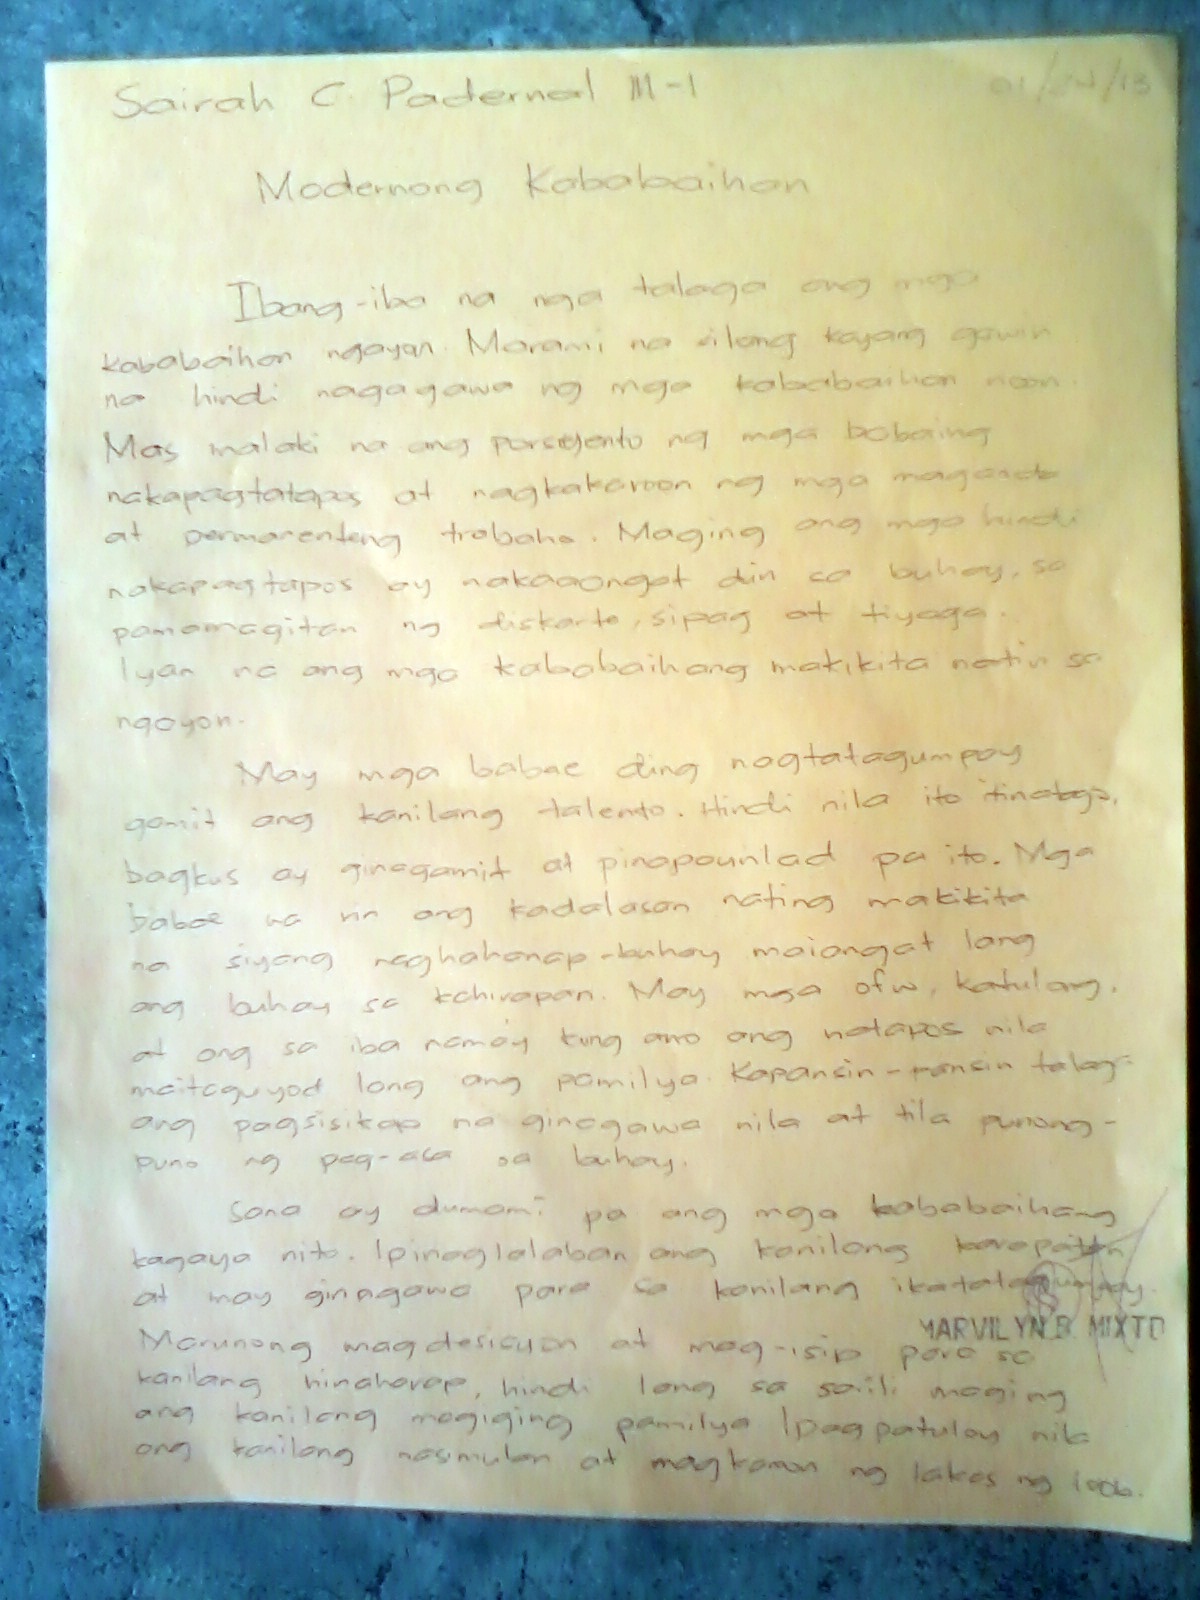 Sairah C. Padernal III-1
01/24/13
Modernong Kababaihan
Ibang-iba na nga talaga ang mga
kababaihan ngayon. Marami na silang kayang gawin
na hindi nagagawa ng mga kababaihan noon.
Mas malaki na ang porsyento ng mga babaing
nakapagtatapos at nagkakaroon ng mga maganda
at permanenteng trabaho. Maging ang mga hindi
nakapagtapos ay nakaaangat din sa buhay, sa
pamamagitan ng diskarte, sipag at tiyaga.
Iyan na ang mga kababaihang makikita natin sa
ngayon.
May mga babae ding nagtatagumpay
gamit ang kanilang talento. Hindi nila ito itinatago,
bagkus ay ginagamit at pinapaunlad pa ito. Mga
babae na rin ang kadalasan nating makikita
na siyang naghahanap-buhay maiangat lang
ang buhay sa kahirapan. May mga ofw, katulong,
at ang sa iba naman kung ano ang natapos nila
maitaguyod lang ang pamilya. Kapansin-pansin talag-
ang pagsisikap na ginagawa nila at tila punong-
puno ng pag-asa sa buhay.
Sana ay dumami pa ang mga kababaihang
kagaya nito. Ipinaglalaban ang kanilang karapatan
at may ginagawa para sa kanilang ikatatagumpay.
MARVILYN B. MIXTO
Marunong magdesisyon at mag-isip para sa
kanilang hinaharap, hindi lang sa saili maging
ang kanilang magiging pamilya. Ipagpatuloy nila
ang kanilang nasimulan at magkaroon ng lakas ng loob.